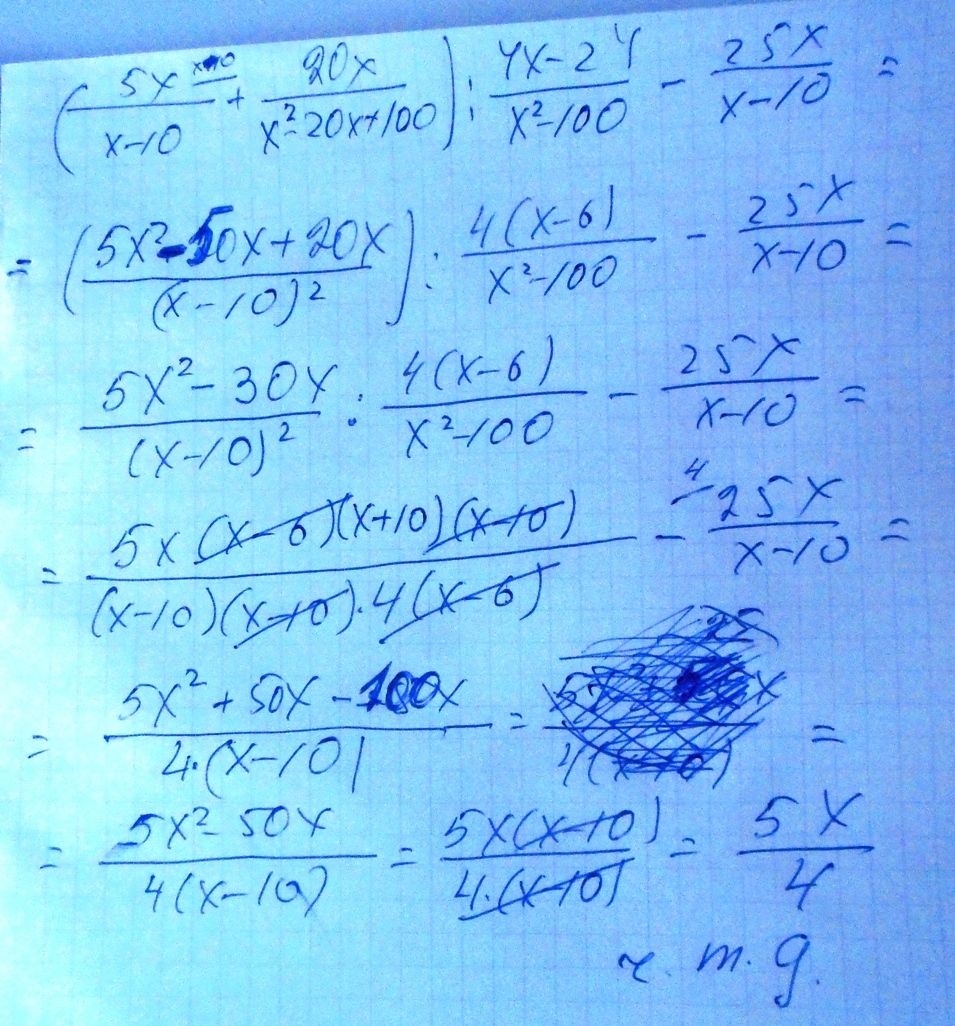 (5x/(x-10) + 20x/(x²-20x+100)) : (4x-24)/(x²-100) - 25x/(x-10) =
= ((5x²-50x+20x)/(x-10)²) : 4(x-6)/(x²-100) - 25x/(x-10) =
= (5x²-30x)/(x-10)² : 4(x-6)/(x²-100) - 25x/(x-10) =
= 5x(x-6)(x+10)(x-10)/((x-10)(x-10)·4(x-6)) - ⁴ 25x/(x-10) =
= (5x²+50x-100x)/(4·(x-10)) = =
= (5x²-50x)/(4(x-10)) = 5x(x-10)/(4·(x-10)) = 5x/4
ч.т.д.